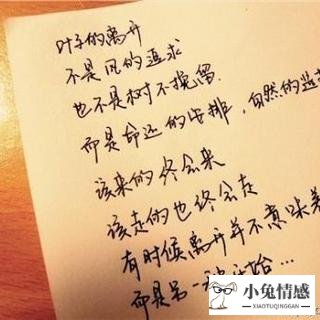 叶子的离开
不是风的追求
也不是树不挽留
而是命运的安排,自然的选
该来的终会来
该走的也终会走
有时候离开并不意味着
而是另一种开始...
小兔情感
XIAOTUQINGGAN